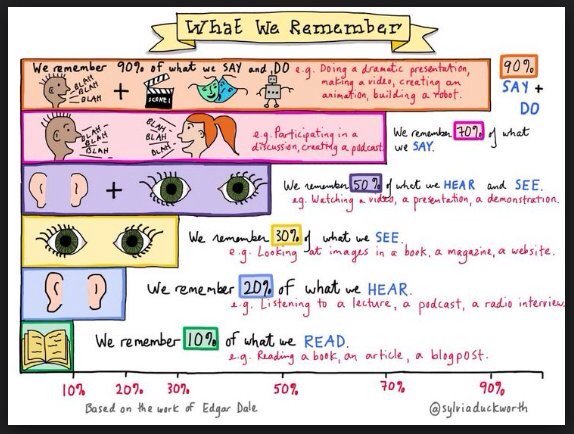 What We Remember
We remember 90% of what we SAY and DO e.g. Doing a dramatic presentation,
making a video, creating an
animation, building a robot.
BLAH
BLAH
BLAH
+
SCENE 1
90%
SAY +
DO
BLAH
BLAH
BLAH
BLAH
BLAH
BLAH
e.g. Participating in a
discussion, creating a podcast
We remember 70% of what
we SAY.
+
We remember 50% of what we HEAR and SEE.
eg. Watching a video, a presentation, a demonstration.
We remember 30% of what we SEE.
e.g. Looking at images in a book, a magazine, a website.
We remember 20% of what we HEAR.
e.g. Listening to a lecture, a podcast, a radio interview
We remember 10% of what we READ.
e.g. Reading a book, an article, a blogpost.
10% 20% 30% 50% 70% 90%
Based on the work of Edgar Dale
@sylviaduckworth